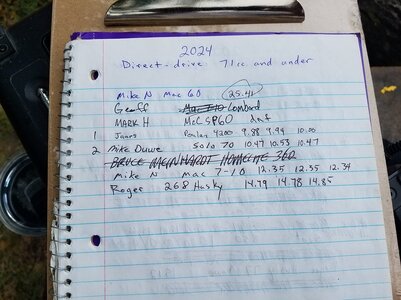 2024
Direct-drive 71cc and under
Mike N Mac 60 25.41
Geoff Lombard
MARK H McC SP60 dnf
1 Jaans Poulan 4200 9.88 9.99 10.00
2 Mike Duwe Solo 70 10.47 10.53 10.47
BRUCE MEINHARDT HOMELITE 360
Mike N Mac 7-10 12.35 12.35 12.34
Roger 268 Husky 14.79 14.78 14.85